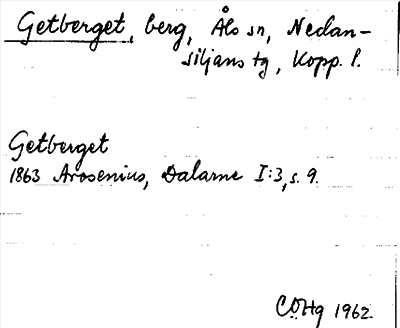 Getberget, berg, Åls sn, Nedan-
siljans tg, Kopp. l.
Getberget
1863 Arosenius, Dalarne I:3, s. 9.
COHg 1962.